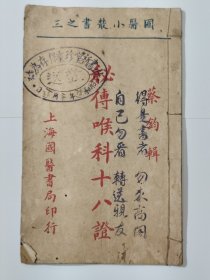 國醫小叢書之三
蔡鈞輯
得是書者勿束高閣
自己勿看轉送親友
秘傳喉科十八證
上海國醫書局印行